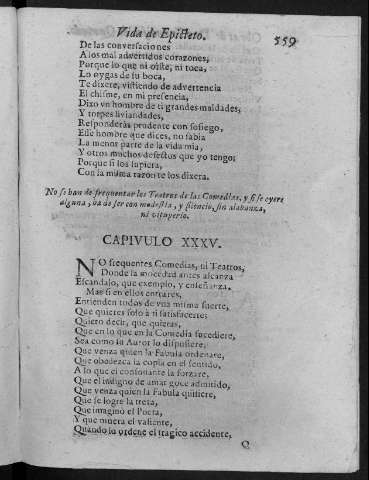 Vida de Epicteto. 559
De las conversaciones
A los mal advertidos corazones,
Porque lo que ni oiste, ni toca,
Lo oygas de su boca,
Te dixere, vistiendo de advertencia
El chisme, en mi presencia,
Dixo un hombre de ti grandes maldades,
Y torpes liviandades,
Responderàs prudente con sosiego,
Esse hombre que dices, no sabia
La menor parte de la vida mia,
Y otros muchos defectos que yo tengo;
Porque si los supiera,
Con la misma razon te los dixera.
No se han de frequentar los Teatros de las Comedias, y si se oyere
alguna, ha de ser con modestia, y silencio, sin alabanza,
ni vituperio.
CAPIVULO XXXV.
NO frequentes Comedias, ni Teatros,
Donde la mocedad antes alcanza
Escandalo, que exemplo, y enseñanza.
Mas si en ellos entrares,
Entienden todos de una misma suerte,
Que quieres solo à ti satisfacerte;
Quiero decir, que quieras,
Que en lo que en la Comedia sucediere,
Sea como su Autor lo dispusiere;
Que venza quien la Fabula ordenare,
Que obedezca la copla en el sentido,
A lo que el consonante la forzare,
Que el indigno de amar goce admitido,
Que venza quien la Fabula quisiere,
Que se logre la treta,
Que imaginò el Poeta,
Y que muera el valiente,
Quando lo ordene el tragico accidente,
Q